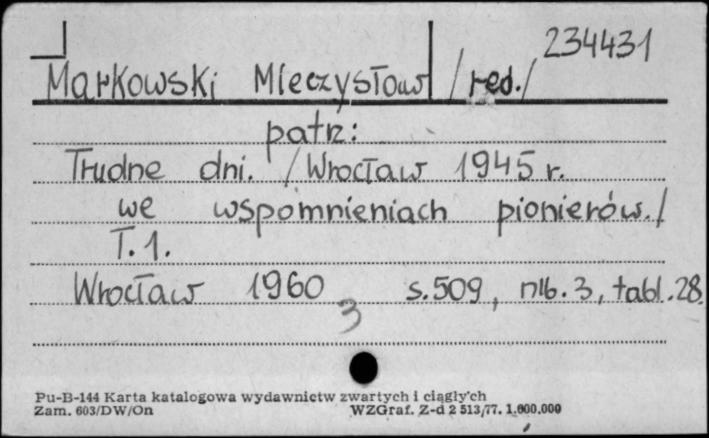 234431
Markowski Mieczysław /red./
patrz:
Trudne dni. /Wrocław 1945 r.
we wspomnieniach pionierów./
T.1.
Wrocław 1960 s.509, nlb.3, tabl.28.
3
Pu-B-144 Karta katalogowa wydawnictw zwartych i ciągłych
Zam. 603/DW/On WZGraf. Z-d 2 513/77. 1.000.000